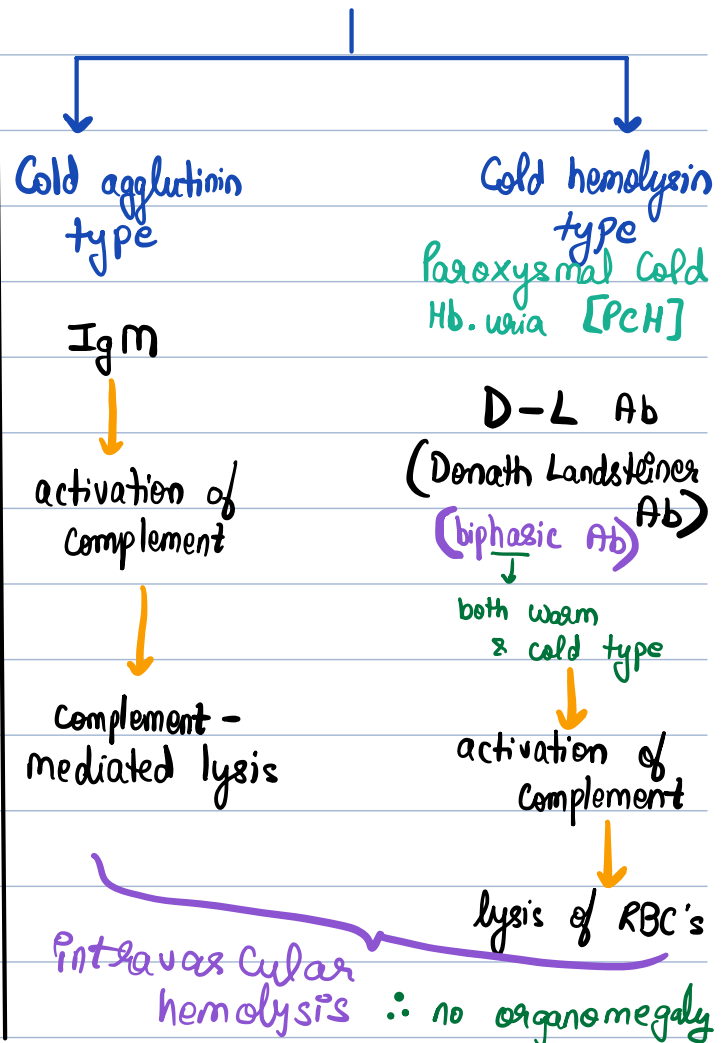 Cold agglutinin
type
IgM
activation of
complement
complement -
mediated lysis
Cold hemolysin
type
Paroxysmal Cold
Hb.uria [PCH]
D-L Ab
(Donath Landsteiner
Ab)
(biphasic Ab)
both warm
& cold type
activation of
complement
lysis of RBC's
intravascular
hemolysis ∴ no organomegaly